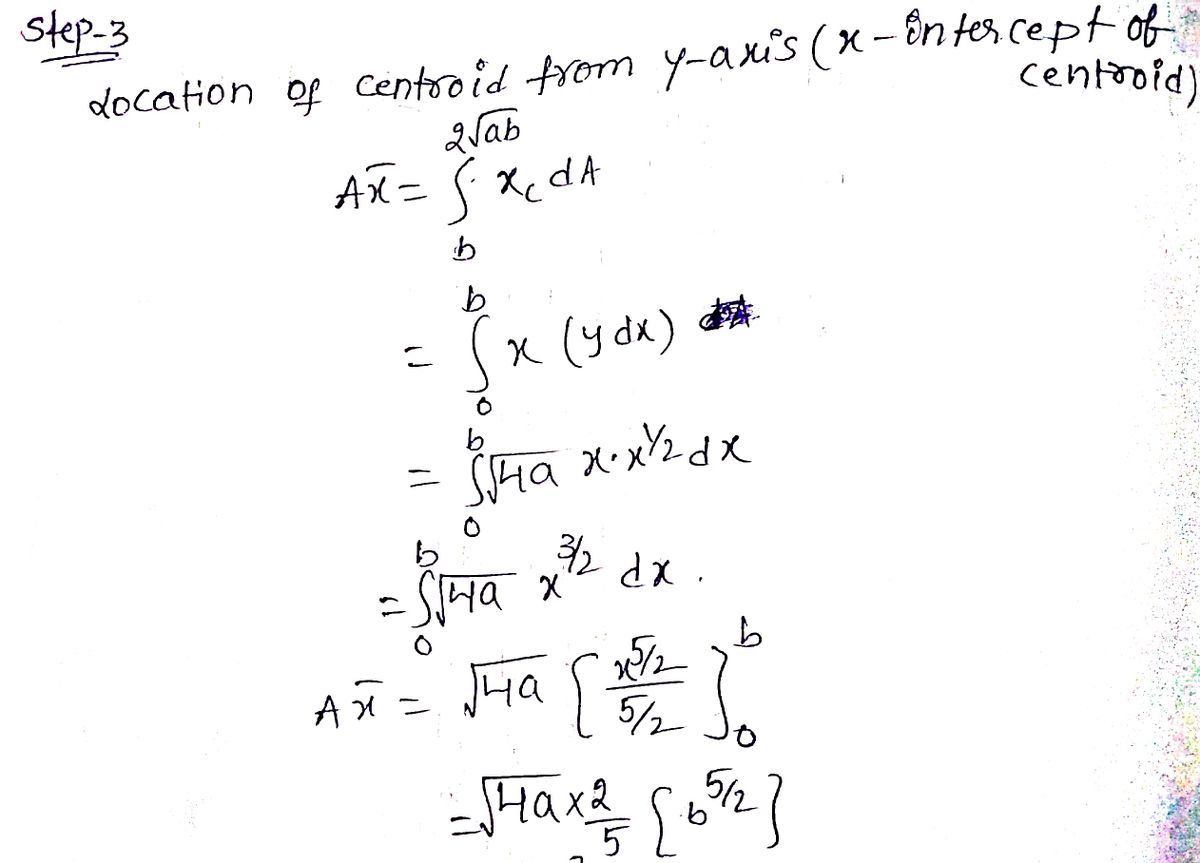 Step-3
Location of centroid from y-axis (x-intercept of centroid)
Ax̄ = ∫_b^{2√ab} x_c dA
= ∫_0^b x (y dx)
= ∫_0^b √4a x·x^{1/2} dx
= ∫_0^b √4a x^{3/2} dx.
Ax̄ = √4a [x^{5/2} / 5/2]_0^b
= √4a × 2/5 [b^{5/2}]